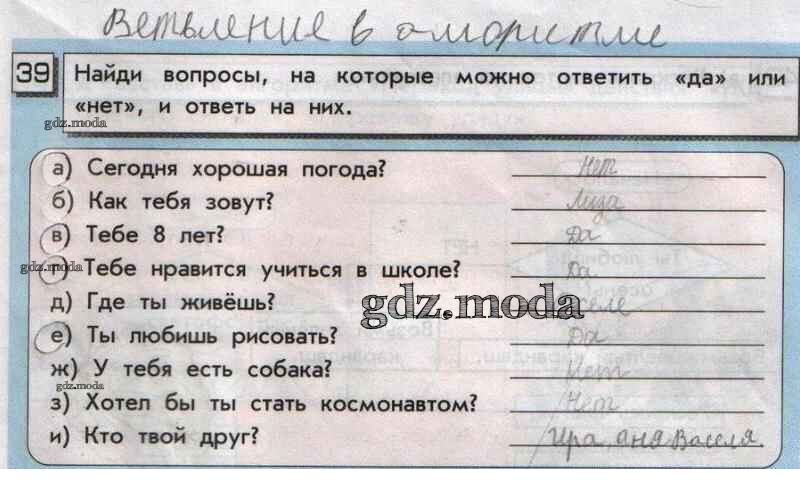 Ветвление в алгоритме
39 Найди вопросы, на которые можно ответить «да» или
«нет», и ответь на них.
gdz.moda
а) Сегодня хорошая погода? Нет
б) Как тебя зовут? Лиза
в) Тебе 8 лет? Да
gdz.moda
г) Тебе нравится учиться в школе? Да
д) Где ты живёшь? селе
gdz.moda
е) Ты любишь рисовать? Да
ж) У тебя есть собака? Нет
gdz.moda
з) Хотел бы ты стать космонавтом? Нет
и) Кто твой друг? Ира, аня Васеля.